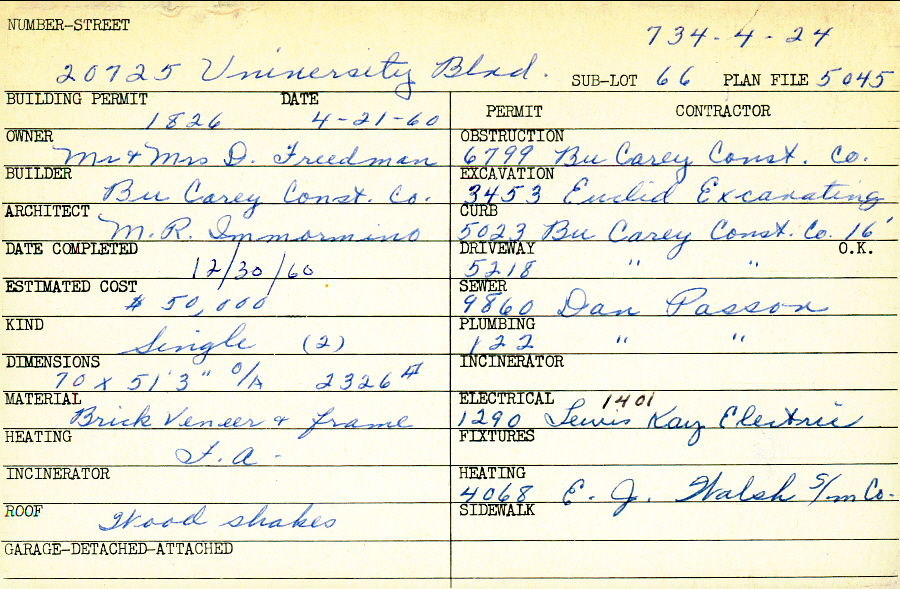 NUMBER-STREET 734-4-24
20725 Univnersity Blvd. SUB-LOT 66 PLAN FILE 5045
BUILDING PERMIT DATE
1826 4-21-60
PERMIT CONTRACTOR
OWNER
Mr & Mrs D. Freedman
OBSTRUCTION
6799 Bu Carey Const. Co.
BUILDER
Bu Carey Const. Co.
EXCAVATION
3453 Euclid Excavating
ARCHITECT
M.R. Immormino
CURB
5023 Bu Carey Const. Co. 16'
DATE COMPLETED
12/30/60
DRIVEWAY O.K.
5218 " "
ESTIMATED COST
$ 50,000
SEWER
9860 Dan Passon
KIND
Single (2)
PLUMBING
122 " "
DIMENSIONS
70 x 51'3" O/A 2326 #
INCINERATOR
MATERIAL
Brick Veneer & frame
ELECTRICAL 1401
1290 Lewis Kay Electric
HEATING
F.A.-
FIXTURES
INCINERATOR
HEATING
4068 E. J. Walsh S/m Co.
ROOF Wood shakes
SIDEWALK
GARAGE-DETACHED-ATTACHED